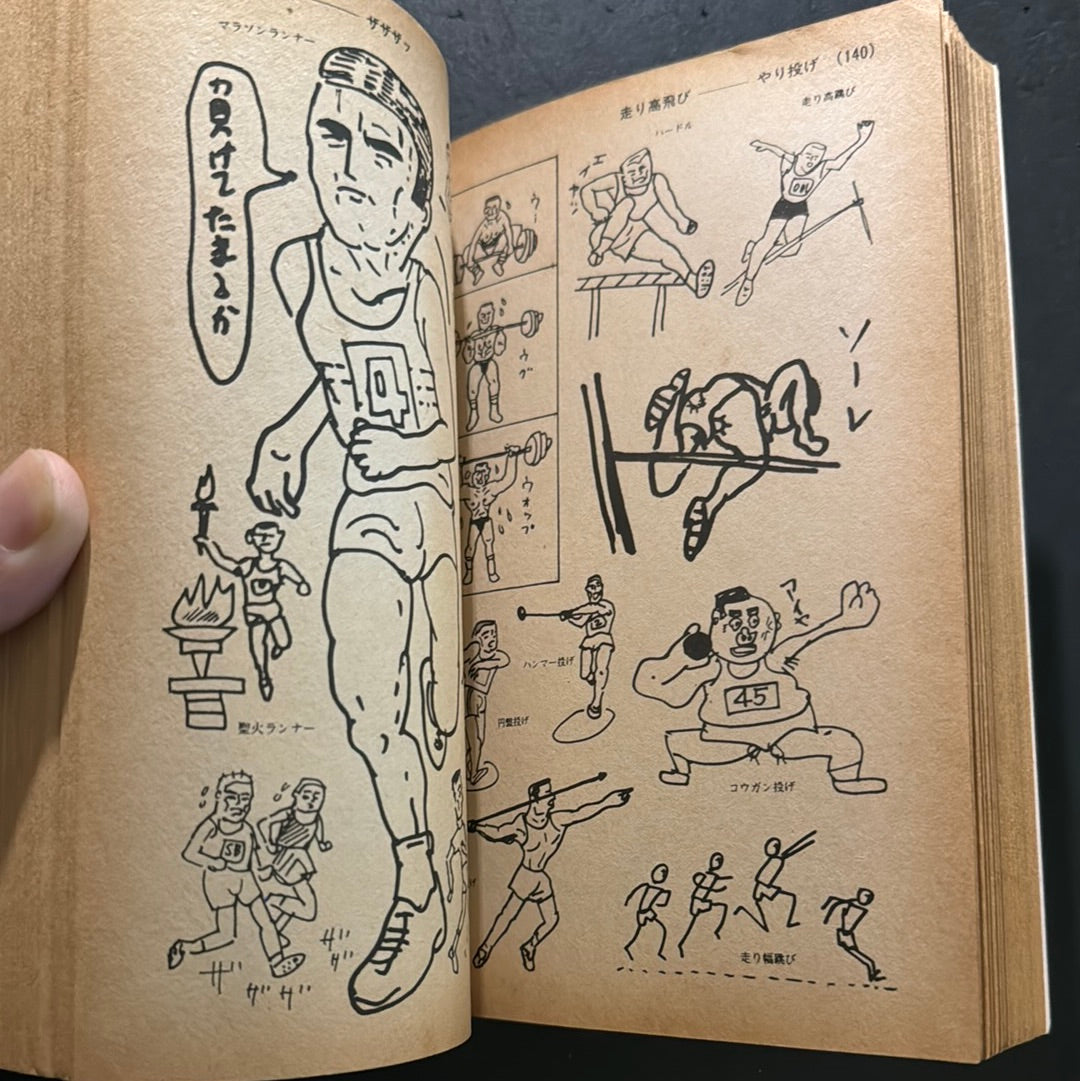 マラソンランナー
ザザザッ
カ負けてたまるか
4
聖火ランナー
SB
ザザ
ザ ザザ
走り高飛び
やり投げ (140)
ハードル
走り高跳び
エイヤッ
ウー
ウグ
ウォップ
ソーレ
ハンマー投げ
円盤投げ
アイヤ
45
コウガン投げ
走り幅跳び